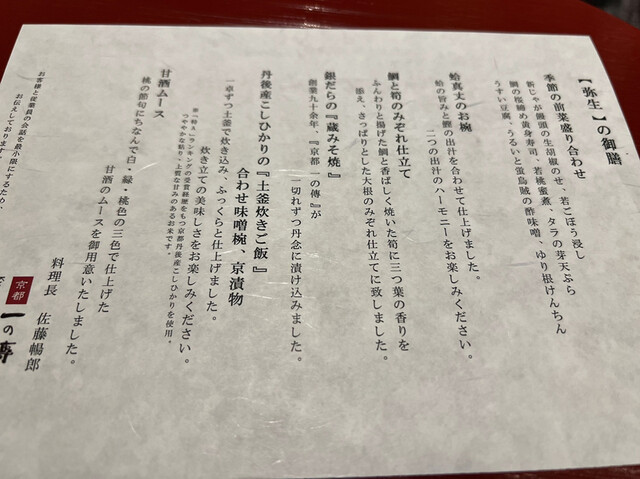 【弥生】の御膳
季節の前菜盛り合わせ
新じゃが饅頭の生胡椒のせ、若ごぼう浸し
鯛の桜締め黄身寿司、若桃蜜煮、タラの芽天ぷら
うすい豆腐、うるいと蛍烏賊の酢味噌、ゆり根けんちん
蛤真丈のお椀
蛤の旨みと鰹の出汁を合わせて仕上げました。
二つの出汁のハーモニーをお楽しみください。
鯛と筍のみぞれ仕立て
ふんわりと揚げた鯛と香ばしく焼いた筍に三つ葉の香りを
添え、さっぱりとした大根のみぞれ仕立てに致しました。
銀だらの『蔵みそ焼』
創業九十余年、『京都一の傳』が
一切れずつ丹念に漬け込みました。
丹後産こしひかりの『土釜炊きご飯』
合わせ味噌椀、京漬物
一卓ずつ土釜で炊き込み、ふっくらと仕上げました。
炊き立ての美味しさをお楽しみください。
米「特A」ランキングの受賞経歴をもつ京都丹後産こしひかりを使用。
つややかな粘り、上質な甘みのあるお米です。
甘酒ムース
桃の節句にちなんで白・緑・桃色の三色で仕上げた
甘酒のムースを御用意いたしました。
料理長 佐藤暢郎
京都 一の傳
お客様と従業員の会話を最小限にするため、
お伝えしております